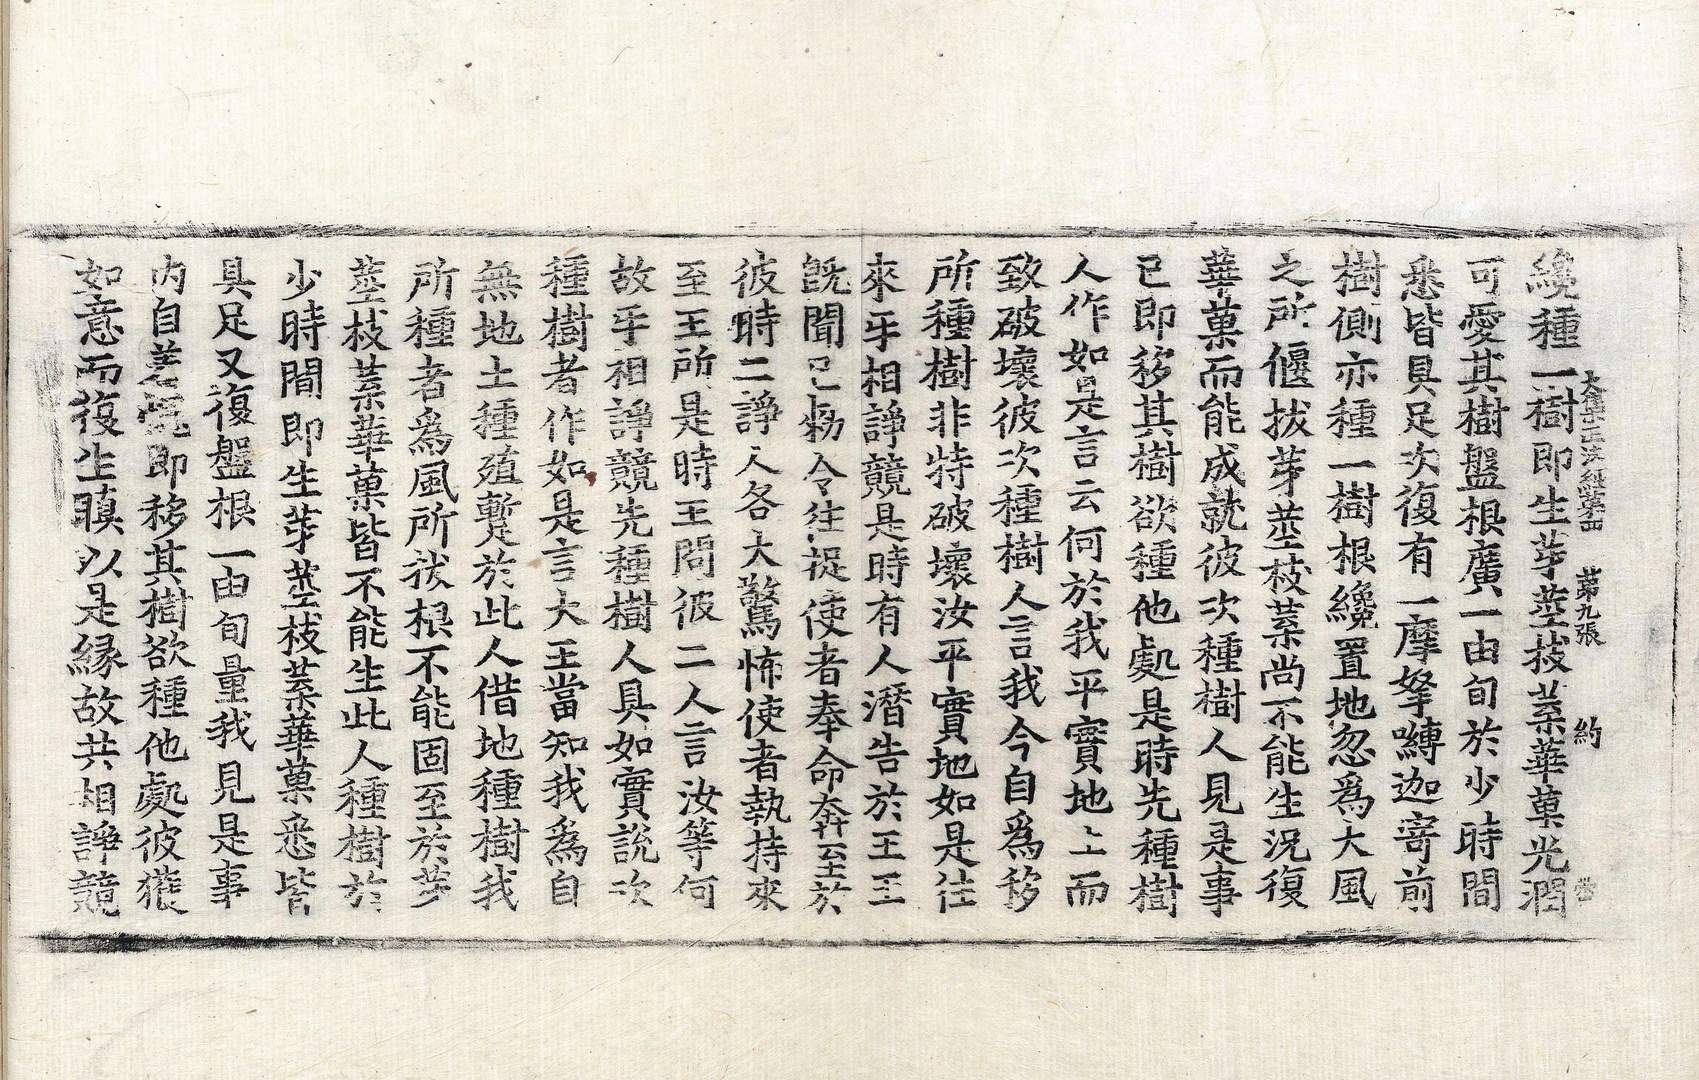 纔種一樹即生芽莖枝葉華菓光潤
大集大正法經第四 第九張 約
可愛其樹盤根廣一由旬於少時間
悉皆具足次復有一摩拏嚩迦寄前
樹側亦種一樹根纔置地忽爲大風
之所偃拔芽莖枝葉尚不能生況復
華菓而能成就彼次種樹人見是事
已即移其樹欲種他處是時先種樹
人作如是言云何於我平實地上而
致破壞彼次種樹人言我今自爲移
所種樹非特破壞汝平實地如是往
來互相諍競是時有人潛告於王王
旣聞已勑令往捉使者奉命奔至於
彼時二諍人各大驚怖使者執持來
至王所是時王問彼二人言汝等何
故互相諍競先種樹人具如實說次
種樹者作如是言大王當知我爲自
無地土種殖暫於此人借地種樹我
所種者爲風所拔根不能固至於芽
莖枝葉華菓皆不能生此人種樹於
少時間即生芽莖枝葉華菓悉皆
具足又復盤根一由旬量我見是事
内自羞愧即移其樹欲種他處彼獲
如意而復生瞋以是緣故共相諍競